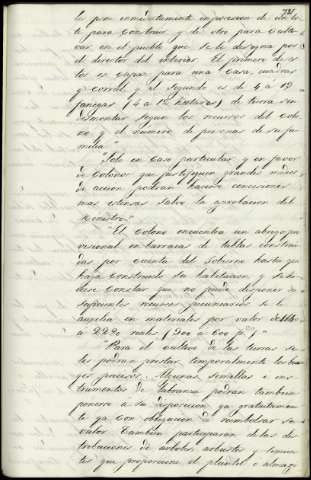 721
te para construir y el otro para culti-
var, en el pueblo que se le designa por
el director del interior. El primero de es
tos es capaz para una casa, cuadras
y corral y el segundo es de 4 a 12
fanegas (4 a 12 hectáreas) de tierra sin
desmontar segun los recursos del colo
no y el número de personas de su fa
milia"
"Solo en caso particular y en favor
de colonos que justifiquen grandes medios
de accion podran hacerse concesiones
mas estensas salvo la aprobacion del
Ministro"
"El colono encuentra un abrigo pro
visional en barracas de tablas construi
das por cuenta del Gobierno hasta que
haya construido su habitacion y si de
hace constar que no puede disponer de
suficientes recursos pecuniarios se le
ausilia en materiales por valor de
a 2220 reales (300 a 600 f.)"
"Para el cultivo de las tierras se
les podran prestar temporalmente los bue
yes precisos. Algunas semillas e ins
trumentos de labranza podran tambien
ponerse a su disposicion ya gratuitamen
te ya con obligacion de reembolsar su
valor. Tambien participaran de las dis
tribuciones de arboles, arbustos y simien
tes que proporcione el plantel o almaci